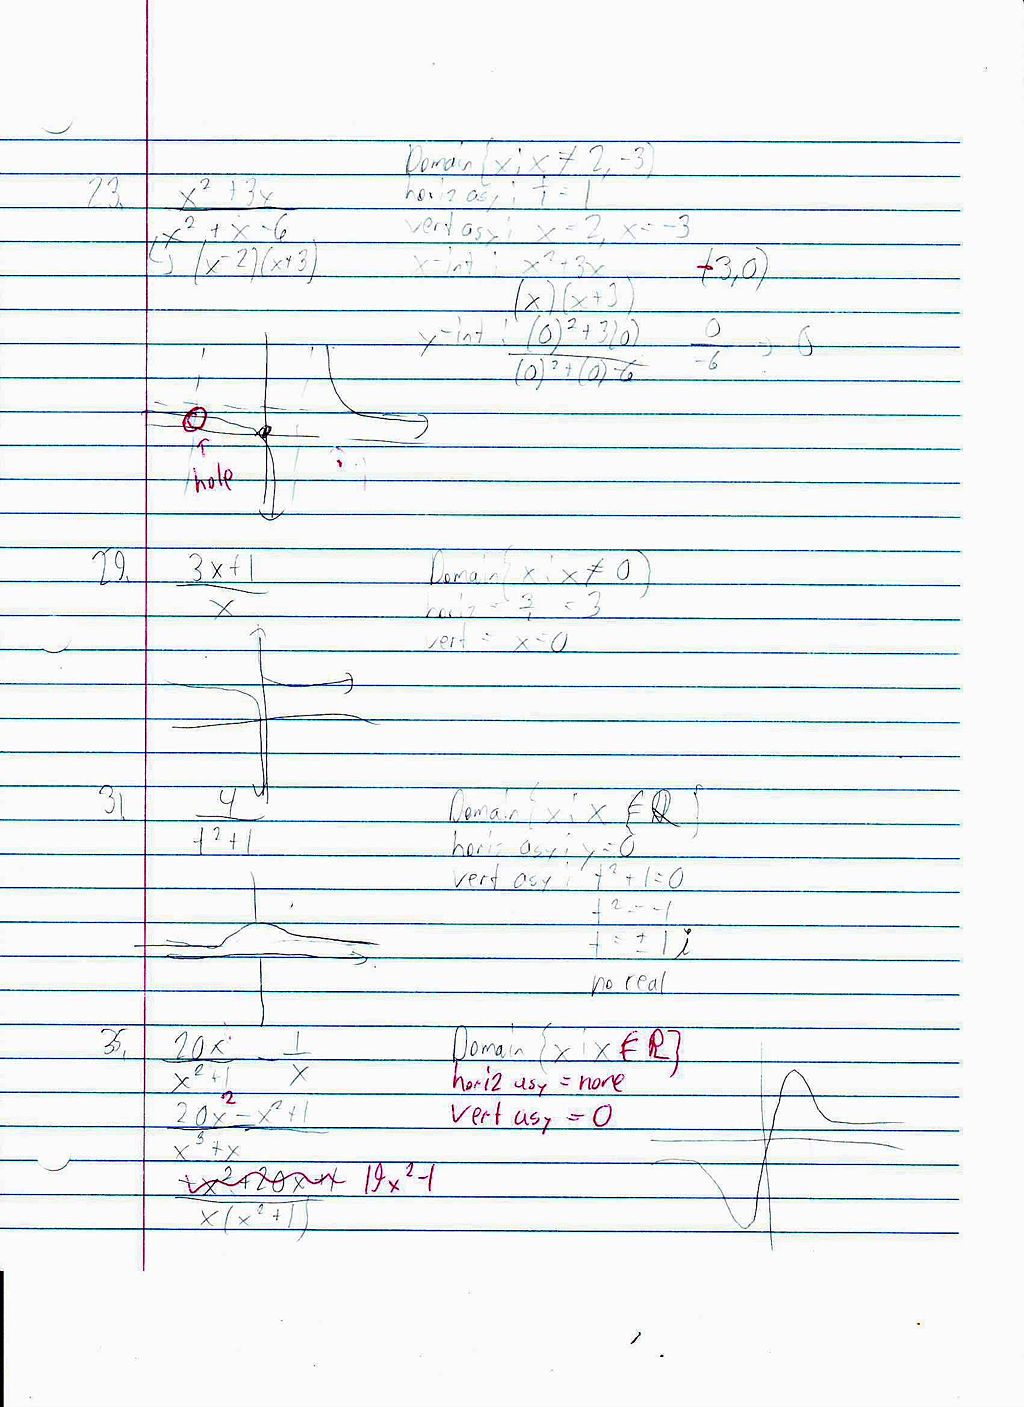 Domain {x : x ≠ 2, -3}
23. x² + 3x
horiz asy : 1/1 = 1
x² + x - 6
vert asy : x = 2, x = -3
↳ (x-2)(x+3)
x-int : x² + 3x (-3,0)
(x)(x+3)
y-int : (0)² + 3(0) 0
(0)² + (0) - 6 -6 → 0
hole
29. 3x+1
x
Domain {x : x ≠ 0}
horiz = 3/1 = 3
vert = x = 0
31. 4
t² + 1
Domain {x : x ∈ ℝ}
horiz asy : y = 0
vert asy : t² + 1 = 0
t² = -1
t = ± 1i
no real
35. 20x - 1
x² + 1 x
20x² - x² + 1
x³ + x
19x² - 1
x(x² + 1)
Domain {x : x ∈ ℝ}
horiz asy = none
vert asy = 0